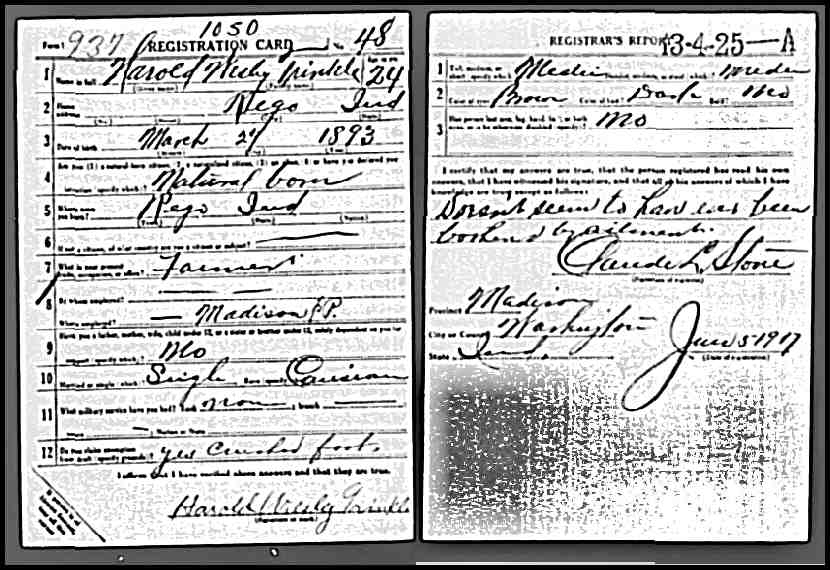 1050
Form 1 937 REGISTRATION CARD No. 48
1 Name in full Harold Wesly Trinkle Age in yrs 24
(Given name) (Family name)
2 Home address Pego Ind
(No.) (Street) (City) (State)
3 Date of birth March 29 1893
(Month) (Day) (Year)
4 Are you (1) a natural-born citizen, (2) a naturalized citizen, (3) an alien, (4) or have you declared your
intention (specify which)? Natural born
5 Where were you born? Pego Ind
(Town) (State) (Nation)
6 If not a citizen, of what country are you a citizen or subject?
7 What is your present trade, occupation, or office? Farmer
8 By whom employed?
Where employed? Madison P.
9 Have you a father, mother, wife, child under 12, or a sister or brother under 12, solely dependent on you for
support (specify which)? No
10 Married or single (which)? Single Race (specify which)?
11 What military service have you had? Rank none ; branch
years ; Nation or State
12 Do you claim exemption from draft (specify grounds)? yes crushed foot
I affirm that I have verified above answers and that they are true.
Harold Wesly Trinkle
(Signature or mark)
REGISTRAR'S REPORT 13-4-25-A
1 Tall, medium, or short (specify which)? Medium Slender, medium, or stout (which)? Medium
2 Color of eyes? Brown Color of hair? Dark Bald? No
3 Has person lost arm, leg, hand, foot, or both
eyes, or is he otherwise disabled (specify)? No
I certify that my answers are true, that the person registered has read his own
answers, that I have witnessed his signature, and that all of his answers of which I have
knowledge are true, except as follows:
Doesn't seem to have ever been
bothered by ailment.
Claude L. Stone
(Signature of registrar)
Precinct Madison
City or County Washington
State Ind. June 5 1917
(Date of registration)